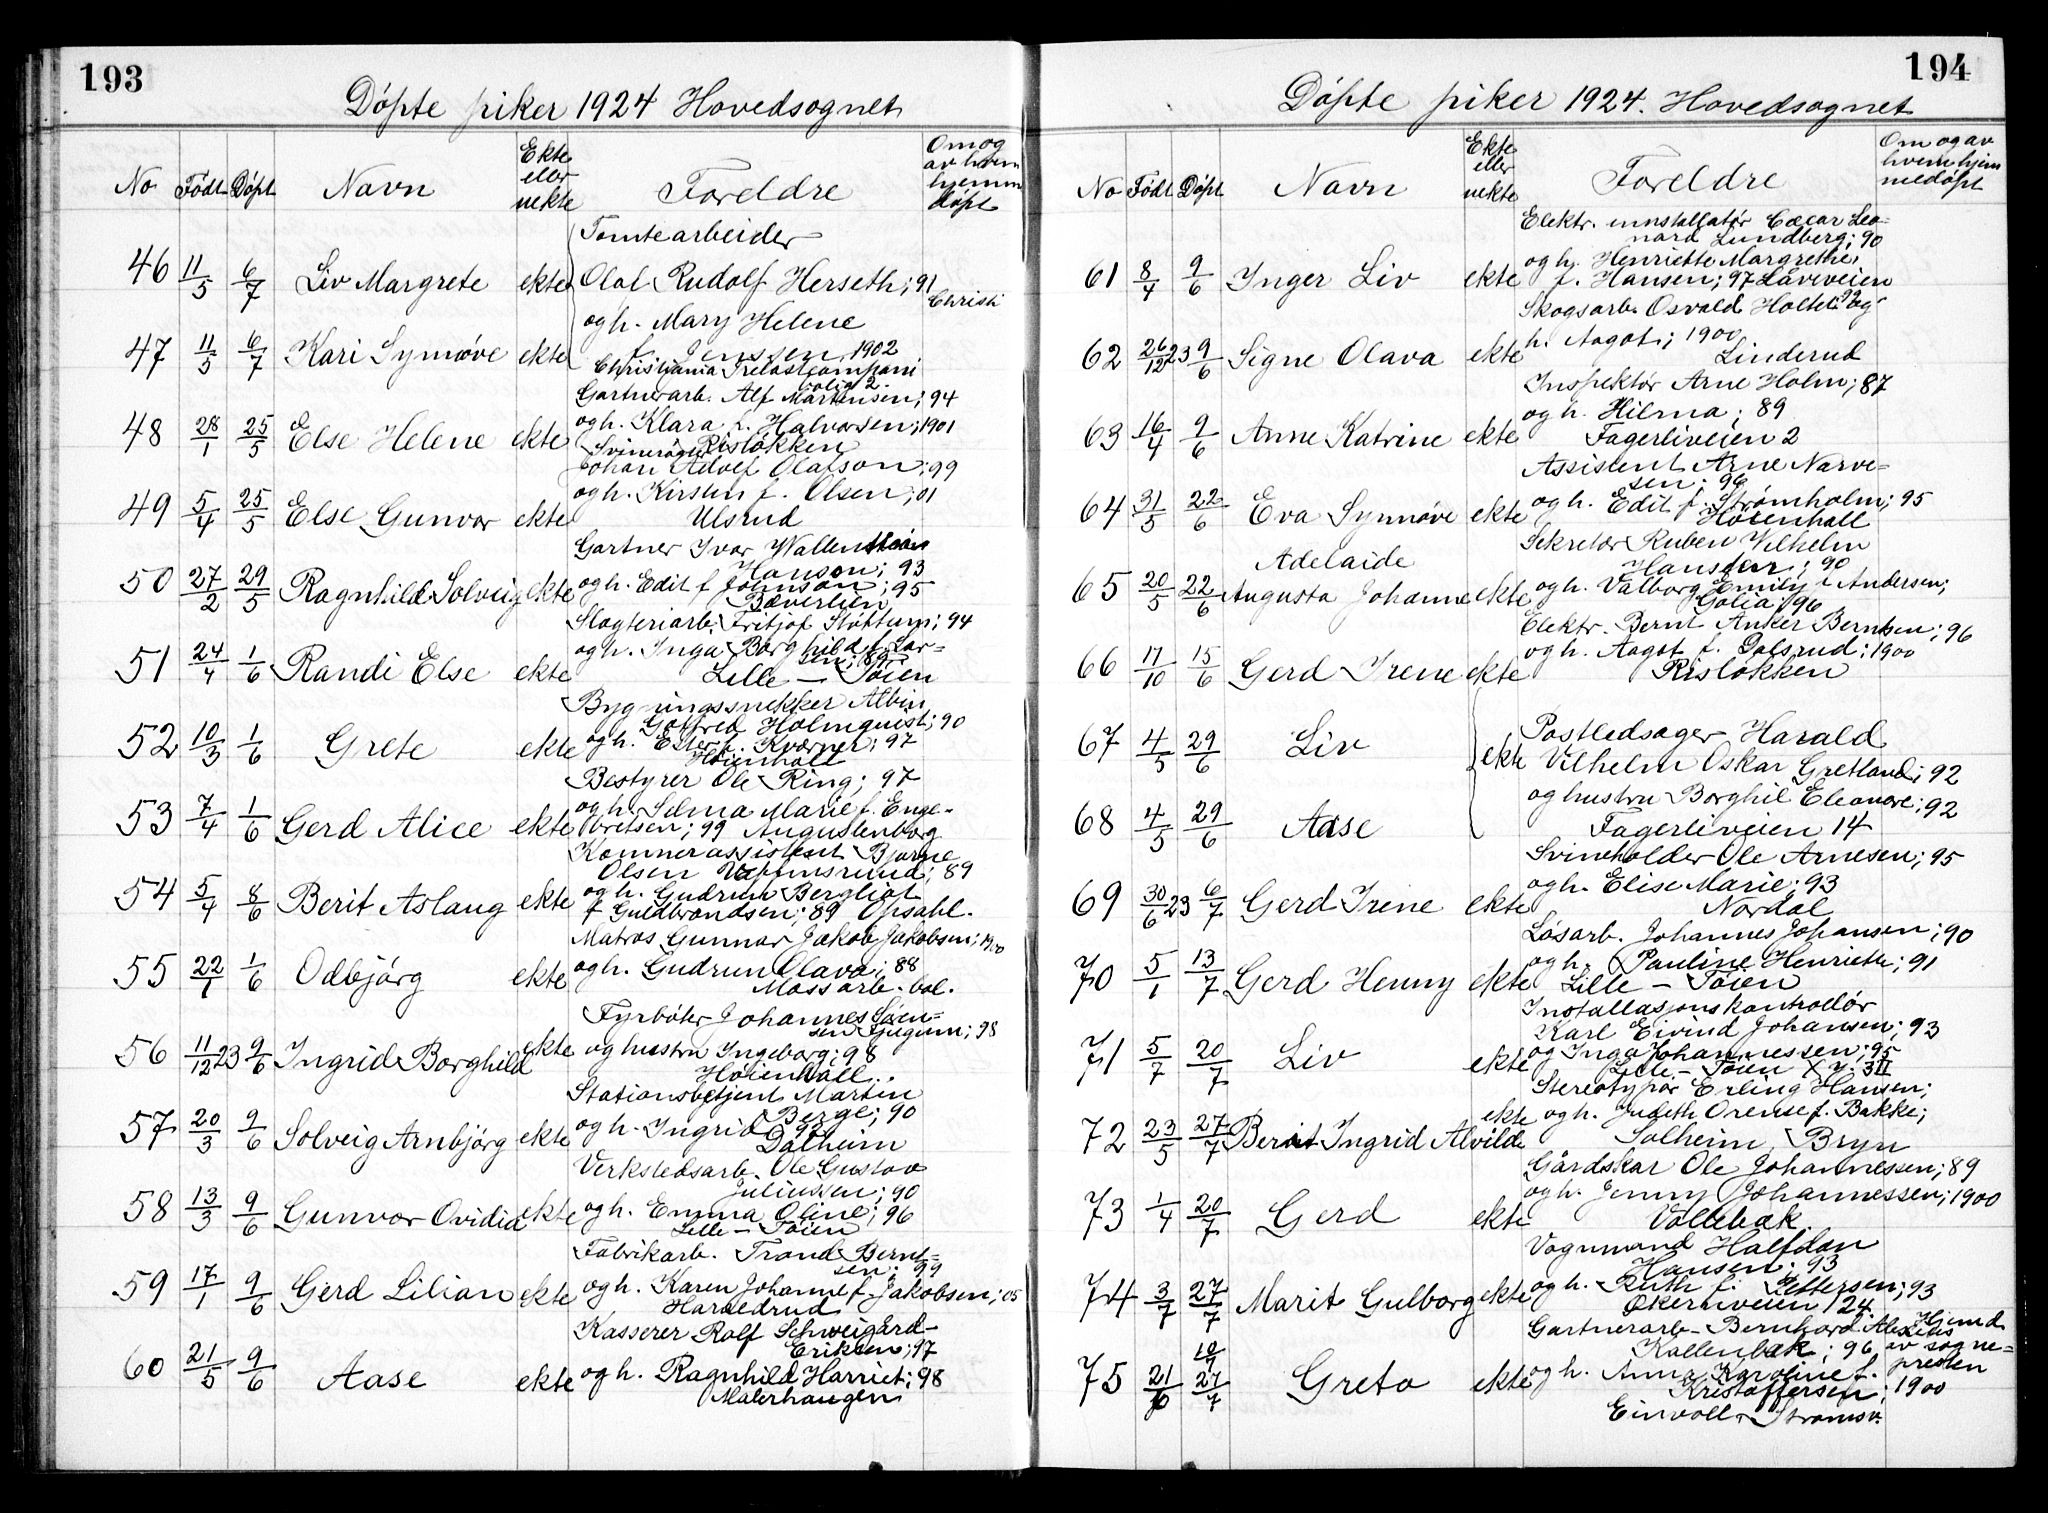 193
Døpte piker 1924 Hovedsognet
No Født Døpt Navn Ekte eller uekte Foreldre Om og av hvem hjemmedøpt
Tomtearbeider
46 11/5 6/7 Liv Margrete ekte Olaf Rudolf Herseth; 91
Christi
og h. Mary Helene
47 11/5 6/7 Kari Synnøve ekte f. Jenssen, 1902
Christiania Trelastcompani
Gartnerarb. Alf Martinsen; 94
48 28/1 25/5 Else Helene ekte og h. Klara f. Halvorsen; 1901
Risløkken
Johan Adolf Olafson; 99
49 5/4 25/5 Else Gunvor ekte og h. Kirsten f. Olsen; 01
Ulsrud
Gartner Ivar
50 27/2 29/5 Ragnhild Solveig ekte Hanson; 93
og h. Edit f. Johnson; 95
Bæverlien
Slagteriarb. Fritjof Støttum; 94
51 24/4 1/6 Randi Else ekte og h. Inga Borghild f. Lar=
sen; 89
Lille - Tøien
Bygningssnekker Albin
Gotfred Holmquist; 90
52 10/3 1/6 Grete ekte og h. Ester f. Kværner; 97
Høienhall
Bestyrer Ole Ring; 97
53 7/4 1/6 Gerd Alice ekte og h. Selma Marie f. Enge-
bretsen; 99 Augustenborg
Kemnerassistent Bjarne
Olsen; 89
54 5/4 8/6 Berit Aslaug ekte og h. Gudrun Bergliot
f Guldbrandsen; 89 Opsahl.
Matros Gunnar Jakob Jakobsen; 1900
55 22/1 1/6 Odbjørg ekte og h. Gudrun Olava; 88
Mossarb. bol.
Fyrbøter Johannes Søren=
sen; 98
56 11/12 23 9/6 Ingrid Borghild ekte og hustru Ingeborg; 98
Høienhall
Stationsbetjent Martin
Berge; 90
57 20/3 9/6 Solveig Arnbjørg ekte og h. Ingrid
Dalheim
Verkstedsarb. Ole Gustav
Juliussen; 90
58 13/3 9/6 Gunvor Ovidia ekte og h. Emma Oline; 96
Lille - Tøien
Fabrikarb. Trond Bernt=
sen; 99
59 17/1 9/6 Gerd Lilian ekte og h. Karen Johanne f. Jakobsen; 05
Haraldrud
Kasserer Rolf Schweigård-
Eriksen; 97
60 21/5 9/6 Aase ekte og h. Ragnhild Harriet; 98
Malerhaugen
194
Døpte piker 1924. Hovedsognet
No Født Døpt Navn Ekte eller uekte Foreldre Om og av hvem hjemmedøpt
Elektr. innstallatør Cæcar Leo=
nard Lundberg; 90
61 8/4 9/6 Inger Liv ekte og h. Henriette Margrethe,
f. Hansen; 97
Skogsarb. Osvald Holter; 99 og
62 26/12 23 9/6 Signe Olava ekte h. Aagot; 1900
Linderud
Inspektør Arne Holm; 87
63 16/4 9/6 Anne Katrine ekte og h. Hilma; 89
Fagerliveien 2
Assistent Arne Narve=
sen; 96
64 31/5 22/6 Eva Synnøve ekte og h. Edit f. Strømholm; 95
Høienhall
Sekretær Ruben Vilhelm
Adelaide
65 20/5 22/6 Augusta Johanne ekte og h. Valborg Emily f Andersen;
Golia, 96
Elektr. Bernt Anker Berntsen; 96
66 17/10 15/6 Gerd Irene ekte og h. Aagot f. Dalsrud; 1900
Risløkken
67 4/5 29/6 Liv ekte Postledsager Harald
Vilhelm Oskar Gretland; 92
og hustru Borghil Eleonore; 92
68 4/5 29/6 Aase Fagerliveien 14
Svineholder Ole Arnesen; 95
69 30/6 23 6/7 Gerd Irene ekte og h. Elise Marie; 93
Nordal
Løsarb. Johannes Johansen; 90
70 5/1 13/7 Gerd Henny ekte og h. Pauline Henriette; 91
Lille - Tøien
Installasjonskontrollør
Karl Eivind Johansen; 93
71 5/7 20/7 Liv ekte og Inga Johannessen; 95
Lille - Tøien
Stereotypør Erling Hansen;
72 23/5 27/7 Berit Ingrid Alvilde ekte og h. Judith Orense f. Bakke;
Solheim, Bryn
Gårdskar Ole Johannessen; 89
73 1/4 20/7 Gerd ekte og h. Jenny Johannessen; 1900
Vollebæk.
Vognmand Halfdan
Hansen; 93
74 3/7 27/7 Marit Gulborg ekte og h. Ruth f. Pettersen; 93
Økernveien 124
Gartnerarb- Bernhard
Kallenbæk; 96
75 21/6 10/7 27/7 Greta ekte og h. Anna Karoline f.
Kristoffersen; 1900
Hjemd av sogne=
presten
Einvoll Strømsv.